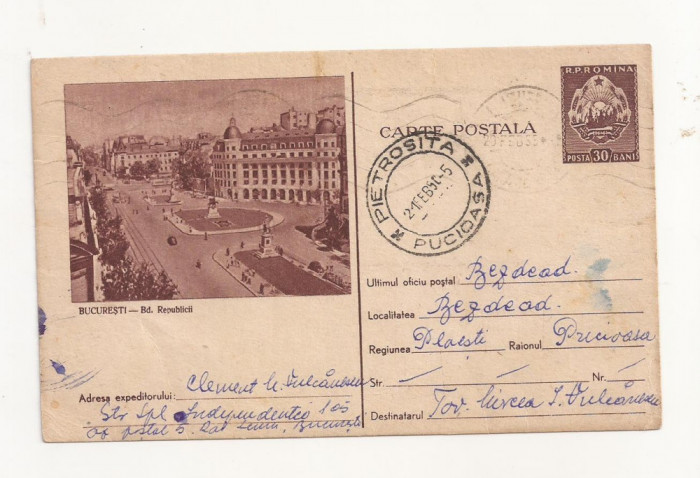 R.P.ROMINA
POSTA 30 BANI
CARTE POSTALA
PIETROSITA
21FEB950-5
PUCIOASA
BUCUREȘTI — Bd. Republicii
Ultimul oficiu poștal Bezdead.
Localitatea Bezdead.
Regiunea Ploesti Raionul Pucioasa
Str. — Nr. —
Destinatarul Tov. Mircea I. Vulcănescu
Adresa expeditorului: Clement M. Vulcănescu
Str Spl. Independentei 105
of postal 5. Lenin, București